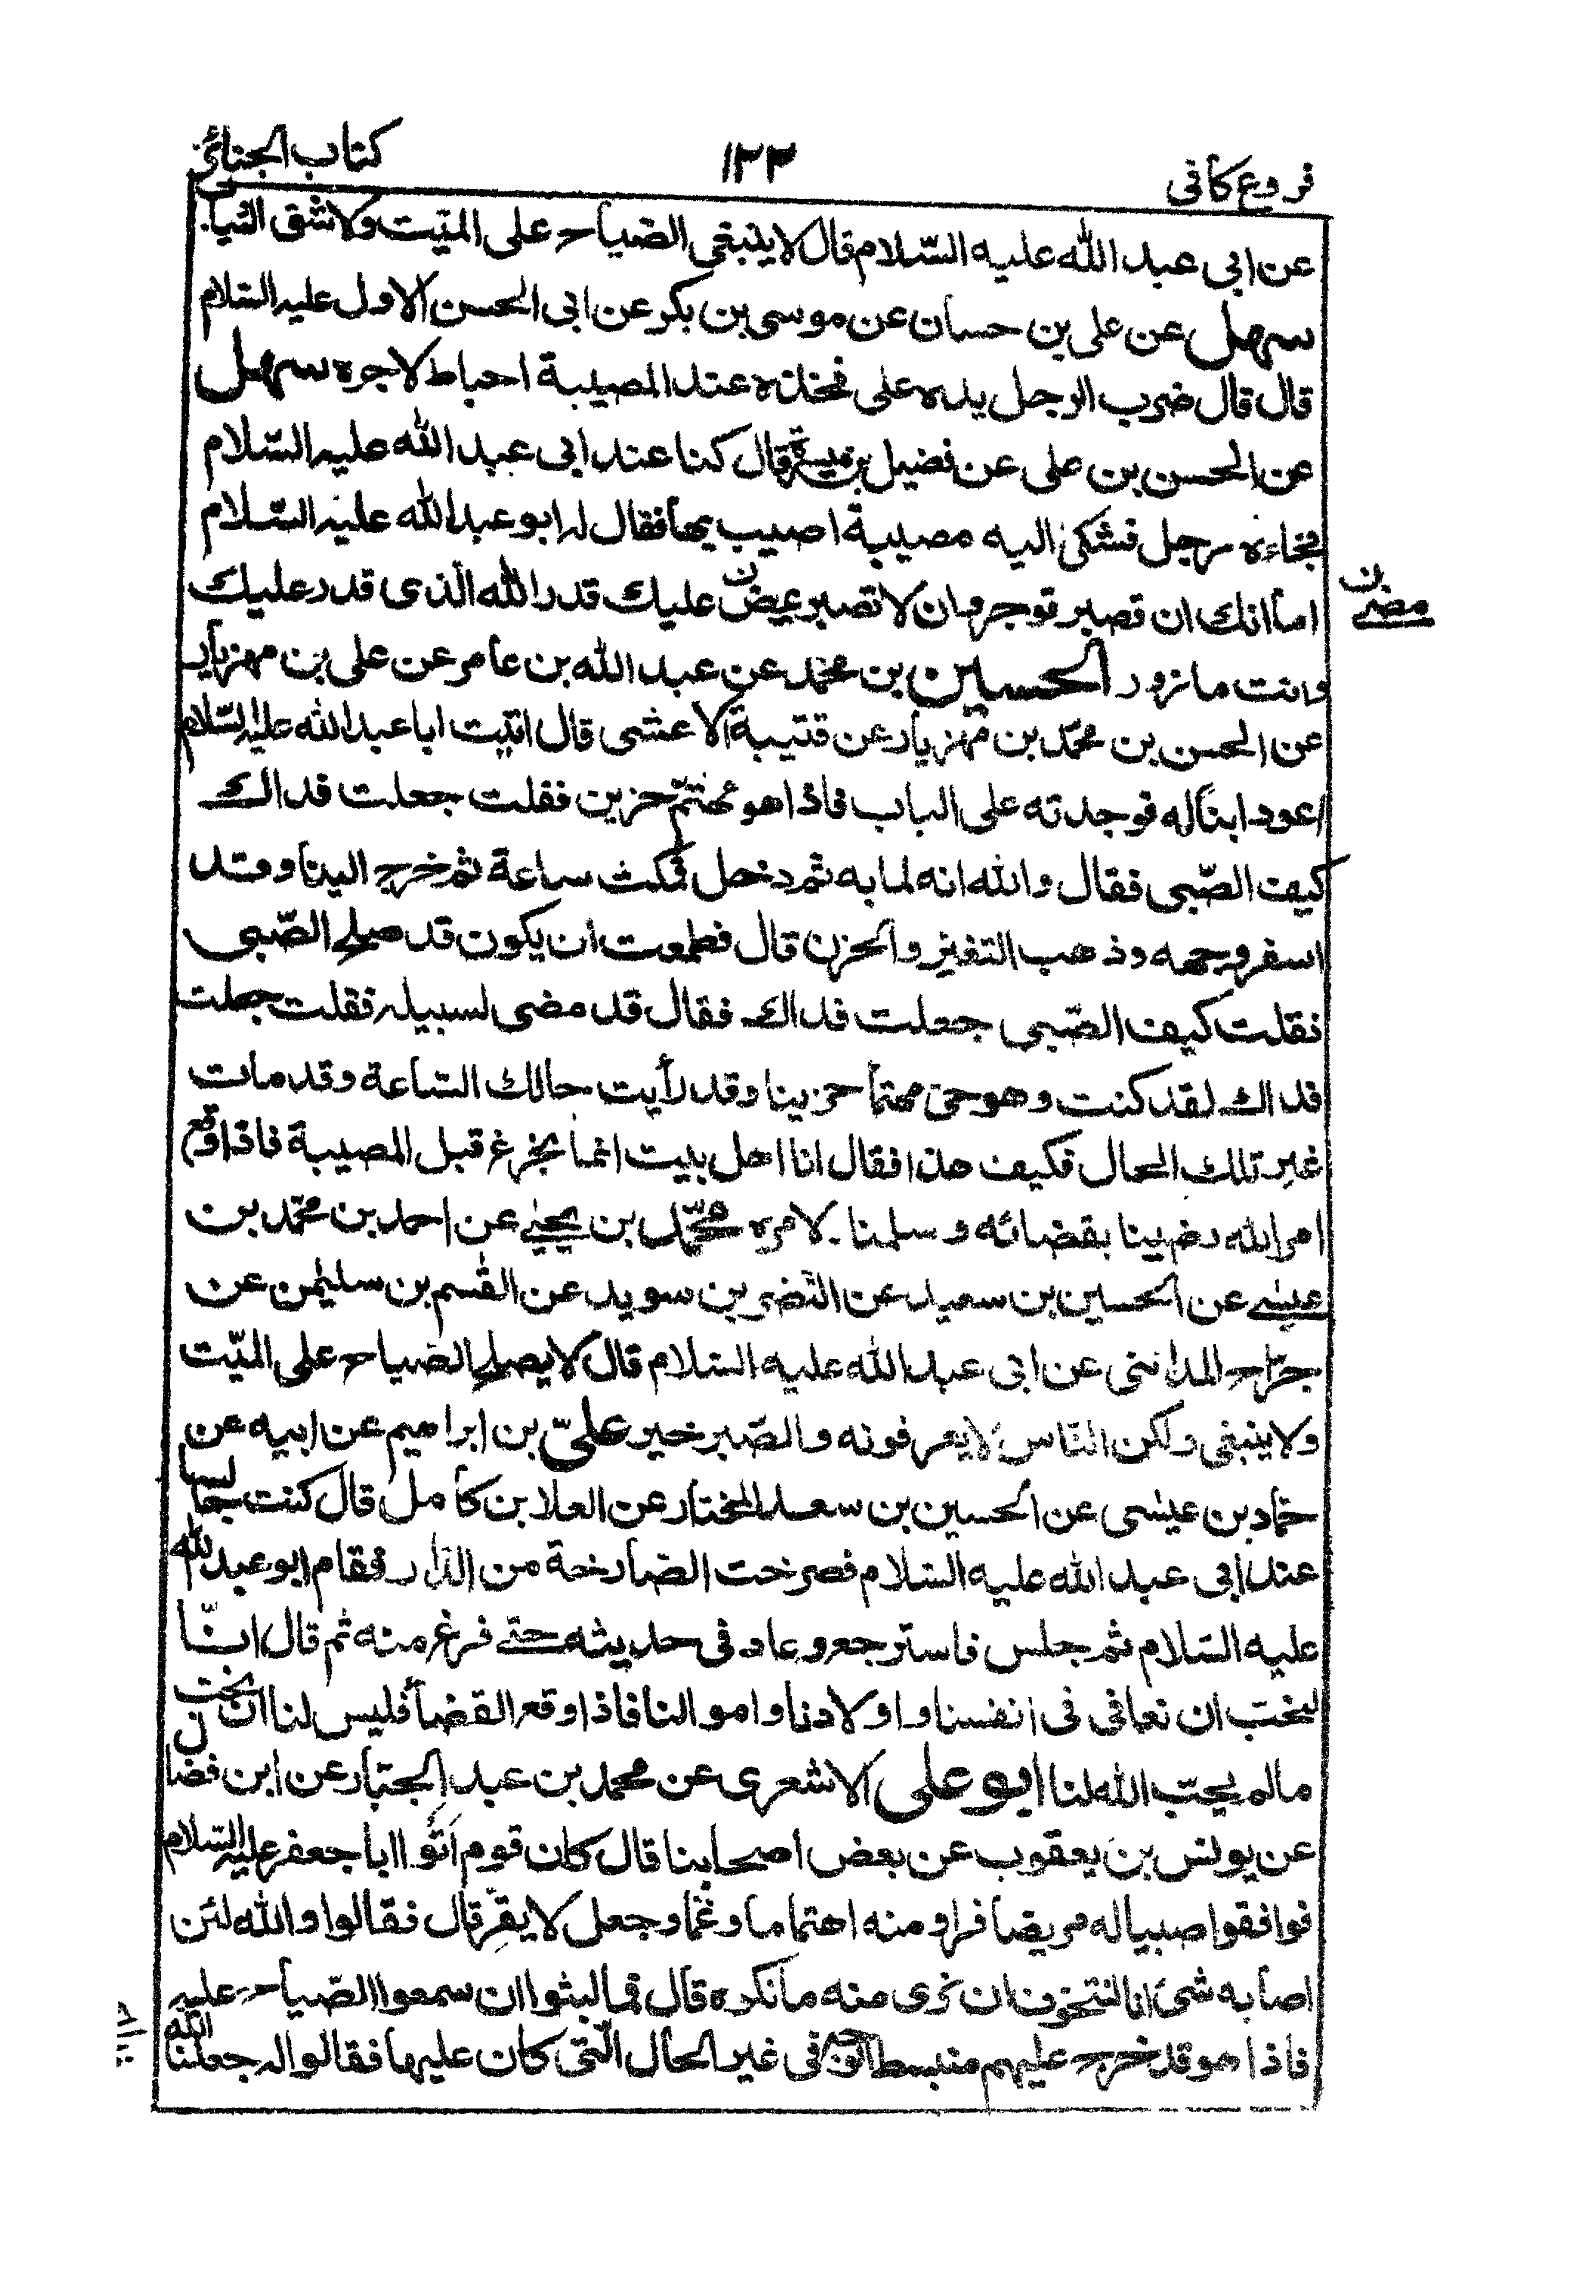 فروع كافى ١٢٢ كتاب الجنائز
عن ابى عبد الله عليه السّلام قال لا ينبغى الصّياح على الميّت ولا شق الثياب
سهل عن على بن حسان عن موسى بن بكر عن ابى الحسن الاول عليه السّلام
قال قال ضرب الرجل يده على فخذه عند المصيبة احباط لاجره سهل
عن الحسن بن على عن فضيل بن ميسرة قال كنا عند ابى عبد الله عليه السّلام
فجاءه رجل فشكى اليه مصيبة اصيب بها فقال له ابو عبد الله عليه السّلام
اما انك ان تصبر توجر وان لا تصبر يمض عليك قدر الله الّذى قدر عليك
مضى ن
وانت مازور الحسين بن محمّد عن عبد الله بن عامر عن على بن مهزيار
عن الحسن بن محمّد بن مهزيار عن قتيبة الاعشى قال اتيت ابا عبد الله عليه السّلام
اعود ابنًا له فوجدته على الباب فاذا هو مهتمّ حزين فقلت جعلت فداك
كيف الصّبى فقال والله انه لما به ثم دخل فمكث ساعة ثم خرج الينا وقد
اسفر وجهه وذهب التغير والحزن قال فطمعت ان يكون قد صلح الصّبى
فقلت كيف الصّبى جعلت فداك فقال قد مضى لسبيله فقلت جعلت
فداك لقد كنت وهو حىّ مهتمّا حزينا وقد رأيت حالك السّاعة وقد مات
غير تلك الحال فكيف هذا فقال انا اهل بيت انما نجزع قبل المصيبة فاذا وقع
امر الله رضينا بقضائه وسلمنا لامره محمّد بن يحيٰى عن احمد بن محمّد بن
عيسٰى عن الحسين بن سعيد عن النّضر بن سويد عن القٰسم بن سليمٰن عن
جرّاح المدائنى عن ابى عبد الله عليه السّلام قال لا يصلح الصّياح على الميّت
ولا ينبغى ولكن النّاس لا يعرفونه والصّبر خير علىّ بن ابراهيم عن ابيه عن
حمّاد بن عيسٰى عن الحسين بن سعد المختار عن العلا بن كامل قال كنت جالسا
عند ابى عبد الله عليه السّلام فصرخت الصّارخة من الدّار فقام ابو عبد الله
عليه السّلام ثم جلس فاسترجع وعاد فى حديثه حتى فرغ منه ثم قال انّا
لنحب ان نعافى فى انفسنا واولادنا واموالنا فاذا وقع القضاء فليس لنا ان نحب ن
ما لم يحبّ الله لنا ابو على الاشعرى عن محمد بن عبد الجبّار عن ابن فضال
عن يونس بن يعقوب عن بعض اصحابنا قال كان قوم اَتَوا ابا جعفر عليه السّلام
فوافقوا صبيا له مريضا فراو منه اهتماما وغمّا وجعل لا يقرّ قال فقالوا والله لئن
اصابه شىء انا لنتخوف ان نرى منه ما نكره قال فما لبثوا ان سمعوا الصّياح عليه
فاذا هو قد خرج عليهم منبسط الوجه فى غير الحال الّتى كان عليها فقالوا له جعلنا الله